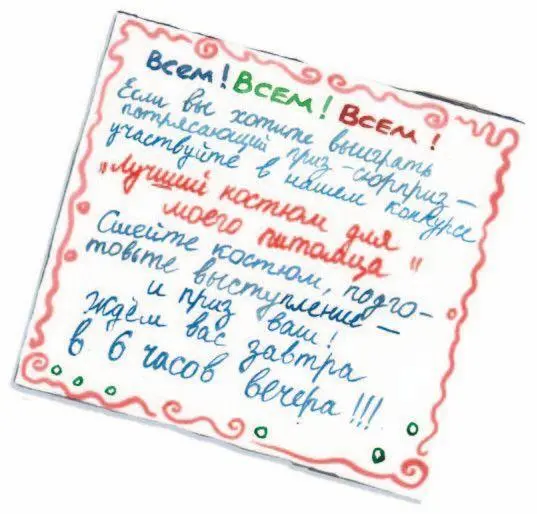 Всем! Всем! Всем!
Если вы хотите выиграть
потрясающий приз-сюрприз –
участвуйте в нашем конкурсе
"Лучший костюм для
моего питомца"
Сшейте костюм, подго-
товьте выступление –
и приз ваш!
Ждём вас завтра
в 6 часов вечера!!!